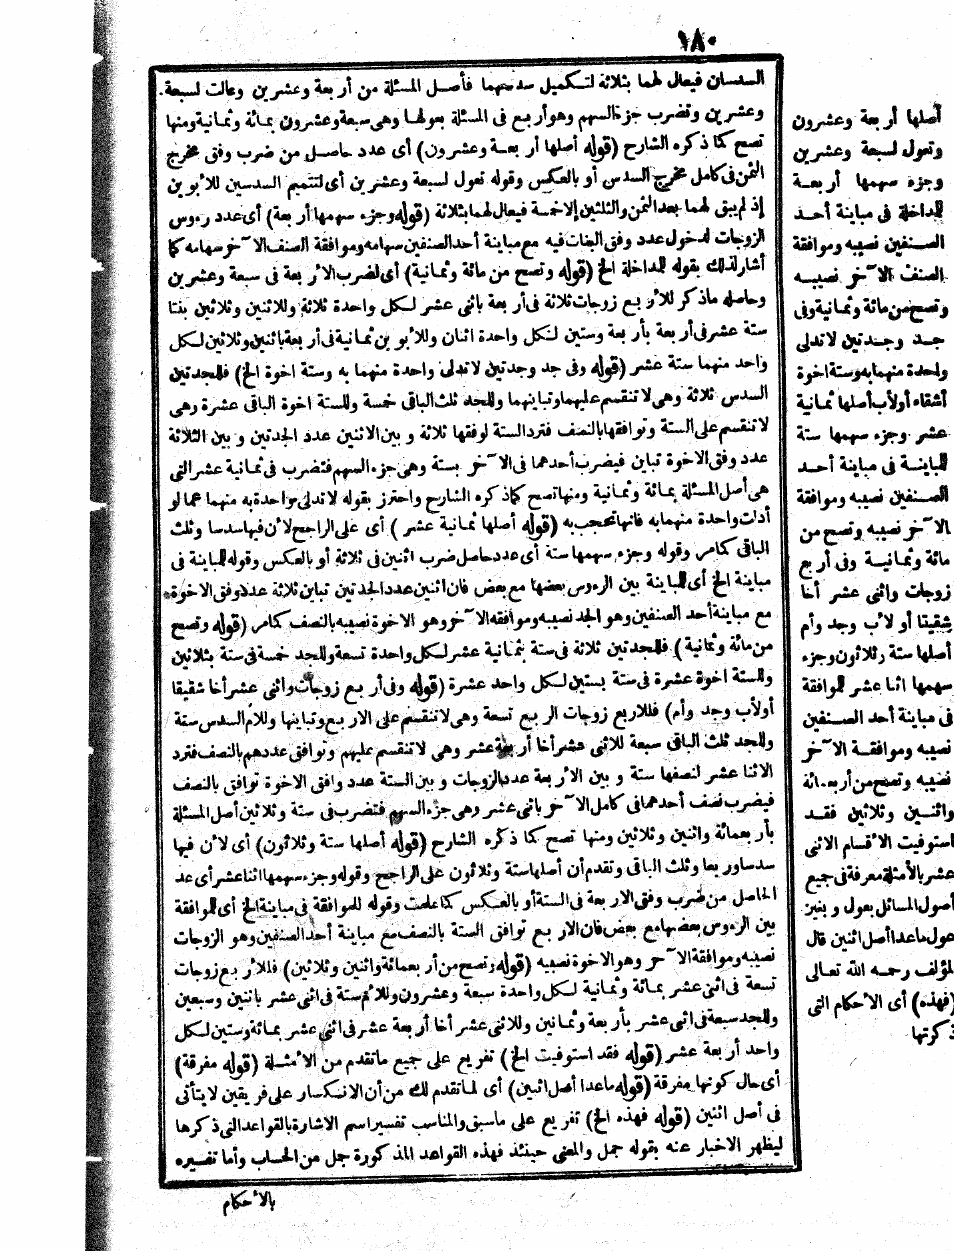 ١٨٠
السدسان فيعال لهما بثلاثة لتكميل سدسهما فأصل المسئلة من أربعة وعشرين وعالت لسبعة
وعشرين وتضرب جزء السهم وهو أربع فى المسئلة بعولها وهى سبعة وعشرون بمائة وثمانية ومنها
تصح كما ذكره الشارح (قوله أصلها أربعة وعشرون) أى عدد حاصل من ضرب وفق مخرج
الثمن فى كامل مخرج السدس أو بالعكس وقوله تعول لسبعة وعشرين أى لتتميم السدسين للأبوين
إذ لم يبق لهما بعد الثمن والثلثين إلا خمسة فيعال لهما بثلاثة (قوله وجزء سهمها أربعة) أى عدد رءوس
الزوجات لدخول عدد وفق البنات فيه مع مباينة أحد الصنفين سهامه وموافقة الصنف الآخر سهامه كما
أشار لذلك بقوله للداخلة الخ (قوله وتصح من مائة وثمانية) أى لضرب الأربعة فى سبعة وعشرين
وحاصله ماذكر للأربع زوجات ثلاثة فى أربعة باثنى عشر لكل واحدة ثلاثة وللاثنين وثلاثين بنتا
ستة عشر فى أربعة بأربعة وستين لكل واحدة اثنان وللأبوين ثمانية فى أربعة باثنين وثلاثين لكل
واحد منهما ستة عشر (قوله وفى جد وجدتين لا تدلى واحدة منهما به وستة اخوة الخ) فللجدتين
السدس ثلاثة وهى لا تنقسم عليهما وتباينهما وللجد ثلث الباقى خمسة وللستة اخوة الباقى عشرة وهى
لا تنقسم على الستة وتوافقها بالنصف فترد الستة لوفقها ثلاثة و بين الاثنين عدد الجدتين و بين الثلاثة
عدد وفق الاخوة تباين فيضرب أحدهما فى الآخر بستة وهى جزء السهم فتضرب فى ثمانية عشر التى
هى أصل المسئلة بمائة وثمانية ومنها تصح كما ذكره الشارح واحترز بقوله لا تدلى واحدة به منهما عما لو
أدلت واحدة منهما به فانها تحجب به (قوله أصلها ثمانية عشر) أى على الراجح لأن فيها سدسا وثلث
الباقى كما مر وقوله وجزء سهمها ستة أى عدد حاصل ضرب اثنين فى ثلاثة أو بالعكس وقوله للمباينة فى
مباينة الخ أى للمباينة بين الرءوس بعضها مع بعض فان اثنين عدد الجدتين تباين ثلاثة عدد وفق الاخوة
مع مباينة أحد الصنفين وهو الجد نصيبه وموافقه الآخر وهو الاخوة نصيبه بالنصف كما مر (قوله وتصح
من مائة وثمانية) فللجدتين ثلاثة فى ستة بثمانية عشر لكل واحدة تسعة وللجد خمسة فى ستة بثلاثين
وللستة اخوة عشرة فى ستة بستين لكل واحد عشرة (قوله وفى أربع زوجات واثنى عشر أخا شقيقا
أولأب وجد وأم) فللاربع زوجات الربع تسعة وهى لا تنقسم على الاربع وتباينها وللأم السدس ستة
وللجد ثلث الباقى سبعة للاثنى عشر أخا أربعة عشر وهى لا تنقسم عليهم وتوافق عددهم بالنصف فترد
الاثنا عشر لنصفها ستة و بين الأربعة عدد الزوجات و بين الستة عدد وافق الاخوة توافق بالنصف
فيضرب نصف أحدهما فى كامل الآخر باثنى عشر وهى جزء السهم فتضرب فى ستة وثلاثين أصل المسئلة
بأربعمائة واثنين وثلاثين ومنها تصح كما ذكره الشارح (قوله أصلها ستة وثلاثون) أى لأن فيها
سدسا وربعا وثلث الباقى وتقدم أن أصلها ستة وثلاثون على الراجح وقوله وجزء سهمها اثنا عشر أى عدد
الحاصل من ضرب وفق الاربعة فى الستة أو بالعكس كما علمت وقوله للموافقة فى مباينة الخ أى للموافقة
بين الرءوس بعضها مع بعض فان الاربع توافق الستة بالنصف مع مباينة أحد الصنفين وهو الزوجات
نصيبه وموافقة الآخر وهو الاخوة نصيبه (قوله وتصح من أربعمائة واثنين وثلاثين) فللأربع زوجات
تسعة فى اثنى عشر بمائة وثمانية لكل واحدة سبعة وعشرون وللأم ستة فى اثنى عشر باثنين وسبعين
وللجد سبعة فى اثنى عشر بأربعة وثمانين وللاثنى عشر أخا أربعة عشر فى اثنى عشر بمائة وستين لكل
واحد أربعة عشر (قوله فقد استوفيت الخ) تفريع على جميع ما تقدم من الأمثلة (قوله مفرقة)
أى حال كونها مفرقة (قوله ماعدا أصل اثنين) أى لما تقدم لك من أن الانكسار على فريقين لا يتأتى
فى أصل اثنين (قوله فهذه الخ) تفريع على ماسبق والمناسب تفسير اسم الاشارة بالقواعد التى ذكرها
ليظهر الاخبار عنه بقوله جمل والمعنى حينئذ فهذه القواعد المذكورة جمل من الحساب وأما تفسيره
بالأحكام
أصلها أربعة وعشرون
وتعول لسبعة وعشرين
وجزء سهمها أربعة
للداخلة فى مباينة أحد
الصنفين نصيبه وموافقة
الصنف الآخر نصيبه
وتصح من مائة وثمانية وفى
جد وجدتين لا تدلى
واحدة منهما به وستة اخوة
أشقاء أولأب أصلها ثمانية
عشر وجزء سهمها ستة
للمباينة فى مباينة أحد
الصنفين نصيبه وموافقة
الآخر نصيبه وتصح من
مائة وثمانية وفى أربع
زوجات واثنى عشر أخا
شقيقا أو لأب وجد وأم
أصلها ستة وثلاثون وجزء
سهمها اثنا عشر للموافقة
فى مباينة أحد الصنفين
نصيبه وموافقة الآخر
نصيبه وتصح من أربعمائة
واثنين وثلاثين فقد
استوفيت الأقسام الاثنى
عشر بالأمثلة مفرقة فى جميع
أصول المسائل بعول و بغير
عول ماعدا أصل اثنين قال
المؤلف رحمه الله تعالى
(فهذه) أى الأحكام التى
ذكرتها